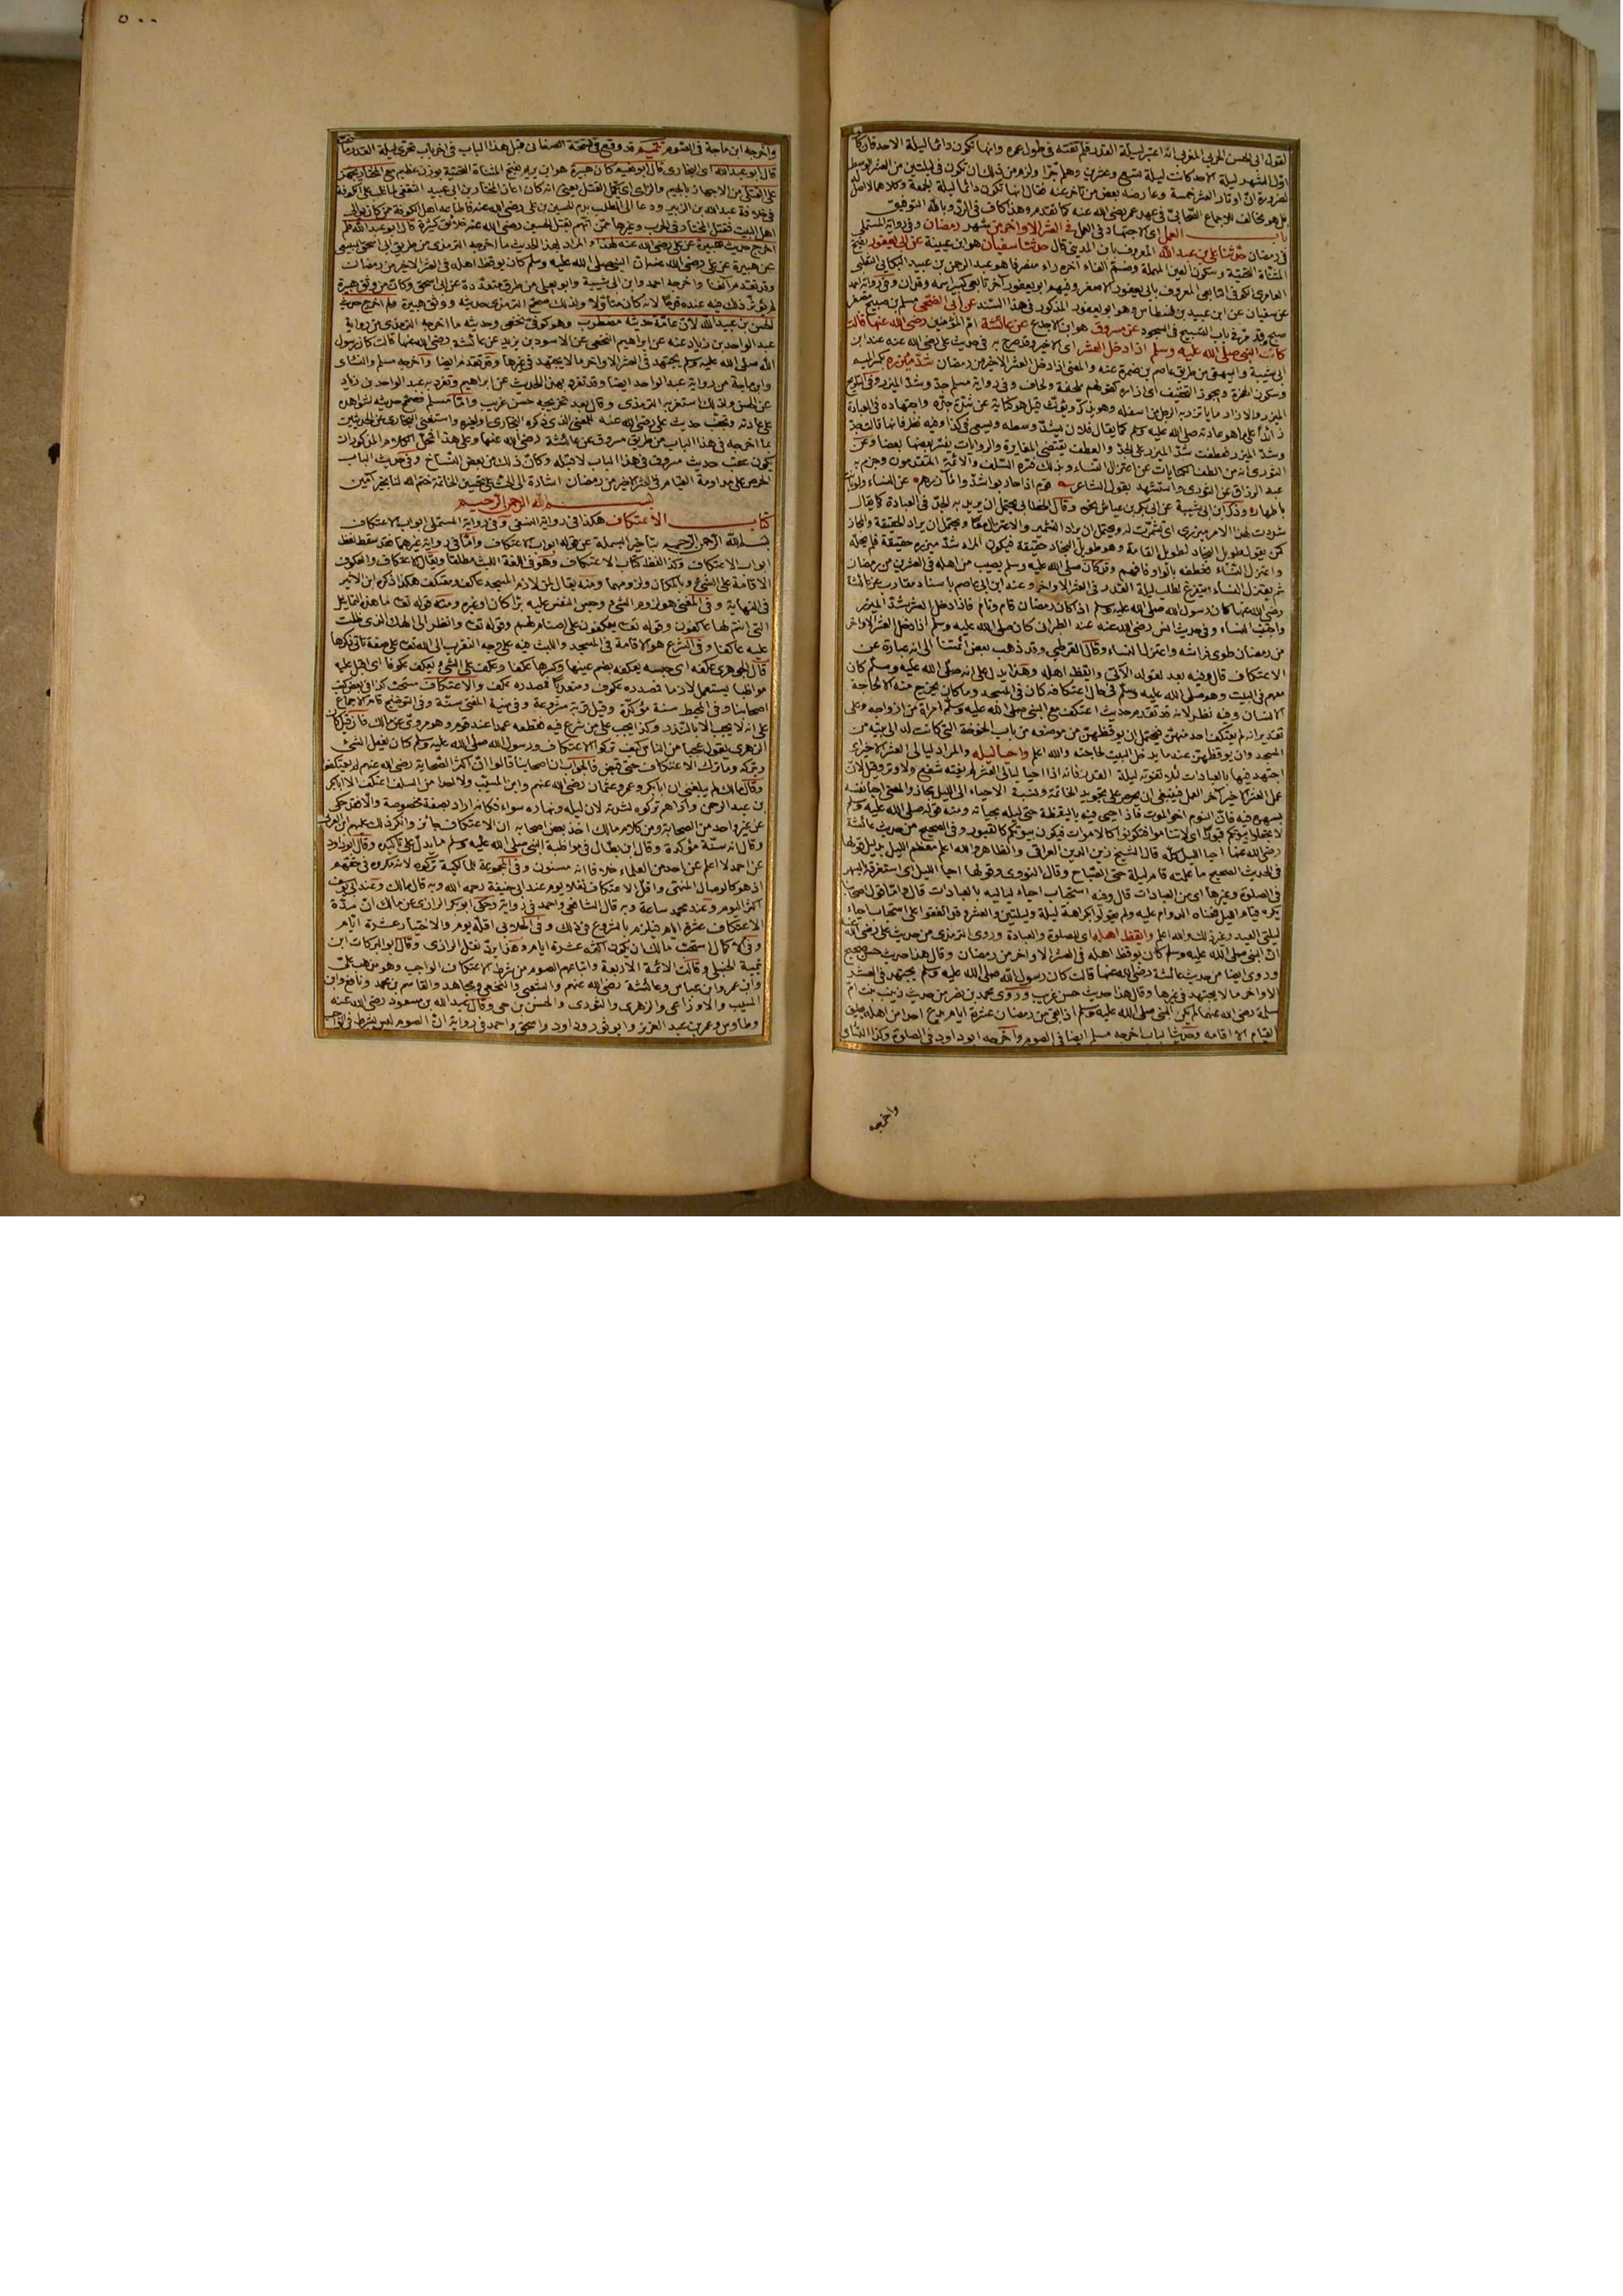 لقول ابى الحسن الحربى المغربى انه اعتبر ليلة القدر فلم تفته فى طول عمره وانها تكون دائما ليلة الاحد فان كان
اول الشهر ليلة الاحد كانت ليلة تسع وعشرين وهلم جرا ولزم من ذلك ان تكون فى ليلتين من العشر الوسط
لضرورة ان اوتار العشر خمسة وعارضه بعض من تأخر عنه فقال انها تكون دائما ليلة الجمعة وكلاهما لا اصل له
بل هو مخالف لاجماع الصحابة فى عهد عمر رضى الله عنه كما تقدم وهذا كاف فى الرد وبالله التوفيق
باب العمل اى الاجتهاد فى العمل فى العشر الاواخر من شهر رمضان وفى رواية المستملى
فى رمضان حدثنا على بن عبد الله المعروف بابن المدينى قال حدثنا سفيان هو ابن عيينة عن ابى يعفور بفتح
المثناة التحتية وسكون العين المهملة وضم الفاء اخره راء منصرفا هو عبد الرحمن بن عبيد البكائى
العامرى الكوفى التابعى المعروف بابى يعفور الاصغر وفيهم ابو يعفور آخر تابعى كبير اسمه وقدان وفى رواية احمد
عن سفيان عن ابن عبيد بن نسطاس وهو ابو يعفور المذكور فى هذا السند عن ابى الضحى مسلم بن صبيح مصغر
صبح وقد مر فى باب التسبيح فى السجود عن مسروق هو ابن الاجدع عن عائشة ام المؤمنين رضى الله عنها قالت
كان النبى صلى الله عليه وسلم اذا دخل العشر اى الاخير وقد صرح به فى حديث على رضى الله عنه عند ابن
ابى شيبة والبيهقى من طريق عاصم بن ضمرة عنه والمعنى اذا دخل العشر الاخير من رمضان شد مئزره بكسر الميم
وسكون الهمزة ويجوز التخفيف اى ازاره كقولهم ملحفة ولحاف وفى رواية مسلم جد وشد الميزر وفى
الميزر والازار ما يأتزر به الرجل من اسفله وهو يذكر ويؤنث قيل هو كناية عن شدة جده واجتهاده فى العبادة
زائدا على ما هو عادته صلى الله عليه وسلم كما يقال فلان يشد وسطه ويسعى فى كذا وفيه نظر فانها قالت جد
وشد الميزر فعطفت شد الميزر على الجد والعطف يقتضى المغايرة والروايات يفسر بعضها بعضا وعن
الثورى انه من الطف الكنايات عن اعتزال النساء وبذلك فسره السلف والائمة المتقدمون وجزم به
عبد الرزاق عن الثورى واستشهد بقول الشاعر قوم اذا حاربوا شدوا مآزرهم عن النساء ولو باتت
باطهار وذكر ابن ابى شيبة عن ابى بكر بن عياش نحوه وقال الخطابى يحتمل ان يريد به الجد فى العبادة كما يقال
شددت لهذا الامر ميزرى اى تشمرت له ويحتمل ان يراد التشمير والاعتزال معا ويحتمل ان يراد الحقيقة والمجاز
كمن يقول طويل النجاد لطويل القامة وهو طويل النجاد حقيقة فيكون المراد شد ميزره حقيقة فلم يحله
واعتزل النساء فعطفه بالواو فافهم وقد كان صلى الله عليه وسلم يصيب من اهله فى العشرين من رمضان
ثم يعتزل النساء ويتفرغ لطلب ليلة القدر فى العشر الاواخر وعند ابن ابى عاصم باسناد مقارب عن عائشة
رضى الله عنها كان رسول الله صلى الله عليه وسلم اذا كان رمضان قام ونام فاذا دخل العشر شد الميزر
واجتنب النساء وفى حديث انس رضى الله عنه عند الطبرانى كان صلى الله عليه وسلم اذا دخل العشر الاواخر
من رمضان طوى فراشه واعتزل النساء وقال القرطبى وقد ذهب بعض ائمتنا الى انه عبارة عن
الاعتكاف قال وفيه بعد لقوله الآتى وايقظ اهله وهذا يدل على انه صلى الله عليه وسلم كان
معهم فى البيت وهو صلى الله عليه وسلم فى حال اعتكافه كان فى المسجد وما كان يخرج منه الا لحاجة
الانسان وفيه نظر لانه قد تقدم حديث اعتكف مع النبى صلى الله عليه وسلم امرأة من ازواجه وعلى
تقدير انه لم يعتكف احد منهن فيحتمل ان يوقظهن من موضعه من باب الخوخة التى كانت له الى بيته من
المسجد وان يوقظهن عند ما يدخل البيت لحاجته والله اعلم واحيا ليله والمراد ليالى العشر الاخير اى
اجتهد فيها بالعبادات لئلا تفوته ليلة القدر فانه اذا احيا ليالى العشر لم يفته شفع ولا وتر وقيل لان
عمل العشر الاخير آخر العمل فينبغى ان يحرص على تجويد الخاتمة ونسبة الاحياء الى الليل مجاز والمعنى احيا نفسه
بسهره فيه فان النوم اخو الموت فاذا احيى فيه باليقظة حيى ليله بحياته ومنه قوله صلى الله عليه وسلم
لا تجعلوا بيوتكم قبورا اى لا تناموا فتكونوا كالاموات فيكون بيوتكم كالقبور وفى الصحيح من حديث عائشة
رضى الله عنها احيا الليل كله قال الشيخ زين الدين العراقى والظاهر والله اعلم معظم الليل بدليل قولها
فى الحديث الصحيح ما علمته قام ليلة حتى الصباح وقال النووى وقولها احيا الليل اى استغرقه بالسهر
فى الصلوة وغيرها اى من العبادات قال وفيه استحباب احياء لياليه بالعبادات قال واما قول اصحابنا
يكره قيام الليل فمعناه الدوام عليه ولم يقولوا بكراهة ليلة وليلتين والعشر وقد اتفقوا على استحباب احياء
ليلتى العيد وغير ذلك والله اعلم وايقظ اهله اى للصلوة والعبادة وروى الترمذى من حديث على رضى الله عنه
ان النبى صلى الله عليه وسلم كان يوقظ اهله فى العشر الاواخر من رمضان وقال هذا حديث حسن صحيح
وروى ايضا من حديث عائشة رضى الله عنها قالت كان رسول الله صلى الله عليه وسلم يجتهد فى العشر
الاواخر ما لا يجتهد فى غيرها وقال هذا حديث حسن غريب وروى محمد بن نصر من حديث زينب بنت ام
سلمة رضى الله عنها لم يكن النبى صلى الله عليه وسلم اذا بقى من رمضان عشرة ايام يدع احدا من اهله يطيق
القيام الا اقامه وحديث الباب اخرجه مسلم ايضا فى الصوم واخرجه ابو داود فى الصلوة وكذا النسائى
واخرجه
٥٠٠
واخرجه ابن ماجة فى الصوم تتميم قد وقع فى نسخة الصغانى قبل هذا الباب فى آخر باب تحرى ليلة القدر
قال ابو عبد الله اى البخارى قال ابو نعيم كان هبيرة هو ابن يريم بفتح المثناة التحتية بوزن عظيم مع المختار يجهز
على القتلى من الاجهاز بالجيم والزاى اى يكمل القتل يعنى انه كان اعان المختار بن ابى عبيد الثقفى لما غلب على الكوفة
فى خلافة عبد الله بن الزبير ودعا الى الطلب بدم الحسين بن على رضى الله عنه فاطاعه اهل الكوفة ممن كان يوالى
اهل البيت فقتل المختار فى الحرب وغيرها ممن اتهم بقتل الحسين رضى الله عنه خلائق كثيرة قال ابو عبد الله فلم
اخرج حديث هبيرة عن على رضى الله عنه لهذا والمراد لهذا الحديث ما اخرجه الترمذى من طريق ابى اسحق السبيعى
عن هبيرة عن على رضى الله عنه ان النبى صلى الله عليه وسلم كان يوقظ اهله فى العشر الاخير من رمضان
وقد تقدم آنفا واخرجه احمد وابن ابى شيبة وابو يعلى من طرق متعددة عن ابى اسحق وكان من وثق هبيرة
لم يؤثر ذلك فيه عنده قدحا لانه كان متأولا ولذلك صحح الترمذى حديثه ووثق هبيرة فلم اخرج حديث
الحسن بن عبيد الله لان عامة حديثه مضطرب وهو كوفى نخعى وحديثه ما اخرجه الترمذى من رواية
عبد الواحد بن زياد عنه عن ابراهيم النخعى عن الاسود بن يزيد عن عائشة رضى الله عنها قالت كان رسول
الله صلى الله عليه وسلم يجتهد فى العشر الاواخر ما لا يجتهد فى غيرها وقد تقدم ايضا واخرجه مسلم والنسائى
وابن ماجة من رواية عبد الواحد ايضا وقد تفرد بهذا الحديث عن ابراهيم وتفرد به عبد الواحد بن زياد
عن الحسن ولذلك استغربه الترمذى وقال بعد تخريجه حسن غريب واما مسلم فصحح حديثه لشواهده
على عادته وتجنب حديث على رضى الله عنه للمعنى الذى ذكره البخارى او لغيره واستغنى البخارى عن الحديثين
بما اخرجه فى هذا الباب من طريق مسروق عن عائشة رضى الله عنها وعلى هذا فمحل الكلام المذكور ان
يكون عقب حديث مسروق فى هذا الباب لا قبله وكان ذلك من بعض النساخ وفى حديث الباب
الحرص على مداومة القيام فى العشر الاخير من رمضان اشارة الى الحث على تحسين الخاتمة ختم الله لنا بخير آمين
بسم الله الرحمن الرحيم
كتاب الاعتكاف هكذا فى رواية النسفى وفى رواية المستملى ابواب الاعتكاف
بسم الله الرحمن الرحيم بتأخير البسملة عن قوله ابواب الاعتكاف واما فى رواية غيرهما فقد سقط لفظ
ابواب الاعتكاف وكذا لفظ كتاب الاعتكاف وهو فى اللغة اللبث مطلقا ويقال الاعتكاف والعكوف
الاقامة على الشئ وبالمكان ولزومهما ومنه يقال لمن لازم المسجد عاكف ومعتكف هكذا ذكره ابن الاثير
فى النهاية وفى المغنى هو لزوم الشئ وحبس النفس عليه برا كان او غيره ومنه قوله تعالى ما هذه التماثيل
التى انتم لها عاكفون وقوله تعالى يعكفون على اصنام لهم وقوله تعالى وانظر الى الهك الذى ظلت
عليه عاكفا وفى الشرع هو الاقامة فى المسجد واللبث فيه على وجه التقرب الى الله تعالى على صفة تأتى ذكرها
قال الجوهرى عكفه اى حبسه يعكفه بضم عينها وكسرها عكفا وعكف على الشئ يعكف عكوفا اى اقبل عليه
مواظبا يستعمل لازما فمصدره عكوف ومتعديا فمصدره عكف والاعتكاف مستحب كذا فى بعض كتب
اصحابنا وفى المحيط سنة مؤكدة وقيل قربة مشروعة وفى منية المفتى سنة وفى التوضيح قام الاجماع
على انه لا يجب الا بالنذر وكذا يجب على من شرع فيه فقطعه عمدا عند قوم وهو مروى عن مالك فان قيل كان
الزهرى يقول عجبا من الناس كيف تركوا الاعتكاف ورسول الله صلى الله عليه وسلم كان يفعل الشئ
ويتركه وما ترك الاعتكاف حتى قبض فالجواب ان اصحابنا قالوا ان اكثر الصحابة رضى الله عنهم لم يعتكفوا
وقال مالك لم يبلغنى ان ابا بكر وعمر وعثمان رضى الله عنهم وابن المسيب ولا احدا من السلف اعتكف الا ابا بكر
بن عبد الرحمن واراهم تركوه لشدته لان ليله ونهاره سواء فكانه اراد بصفة مخصوصة والا فقد حكى
عن غير واحد من الصحابة ومن كلام مالك اخذ بعض اصحابه ان الاعتكاف جائز وانكر ذلك عليهم ابن العربى
وقال انه سنة مؤكدة وقال ابن بطال فى مواظبة النبى صلى الله عليه وسلم ما يدل على تأكيده وقال ابو داود
عن احمد لا اعلم عن احد من العلماء خلافا انه مسنون وفى المجموعة للمالكية تركوه لانه مكروه فى حقهم
اذ هو كالوصال المنهى واقل الاعتكاف نفلا يوم عند ابى حنيفة رحمه الله وبه قال مالك وعند ابى يوسف
اكثر اليوم وعند محمد ساعة وبه قال الشافعى واحمد فى رواية وحكى ابو بكر الرازى عن مالك ان مدة
الاعتكاف عشرة ايام فيلزم بالشروع فى ذلك وفى الجلاب اقله يوم والاختيار عشرة ايام
وفى الاكمال استحب مالك ان يكون اكثره عشرة ايام وهذا يرد نقل الرازى وقال ابو البركات ابن
تيمية الحنبلى وقالت الائمة الاربعة واتباعهم الصوم من شرط الاعتكاف الواجب وهو مذهب على
وابن عمر وابن عباس وعائشة رضى الله عنهم والشعبى والنخعى ومجاهد والقاسم بن محمد ونافع وابن
المسيب والاوزاعى والزهرى والثورى والحسن بن حى وقال عبد الله بن مسعود رضى الله عنه
وطاوس وعمر بن عبد العزيز وابو ثور وداود واسحق واحمد فى رواية ان الصوم ليس بشرط فى الواجب